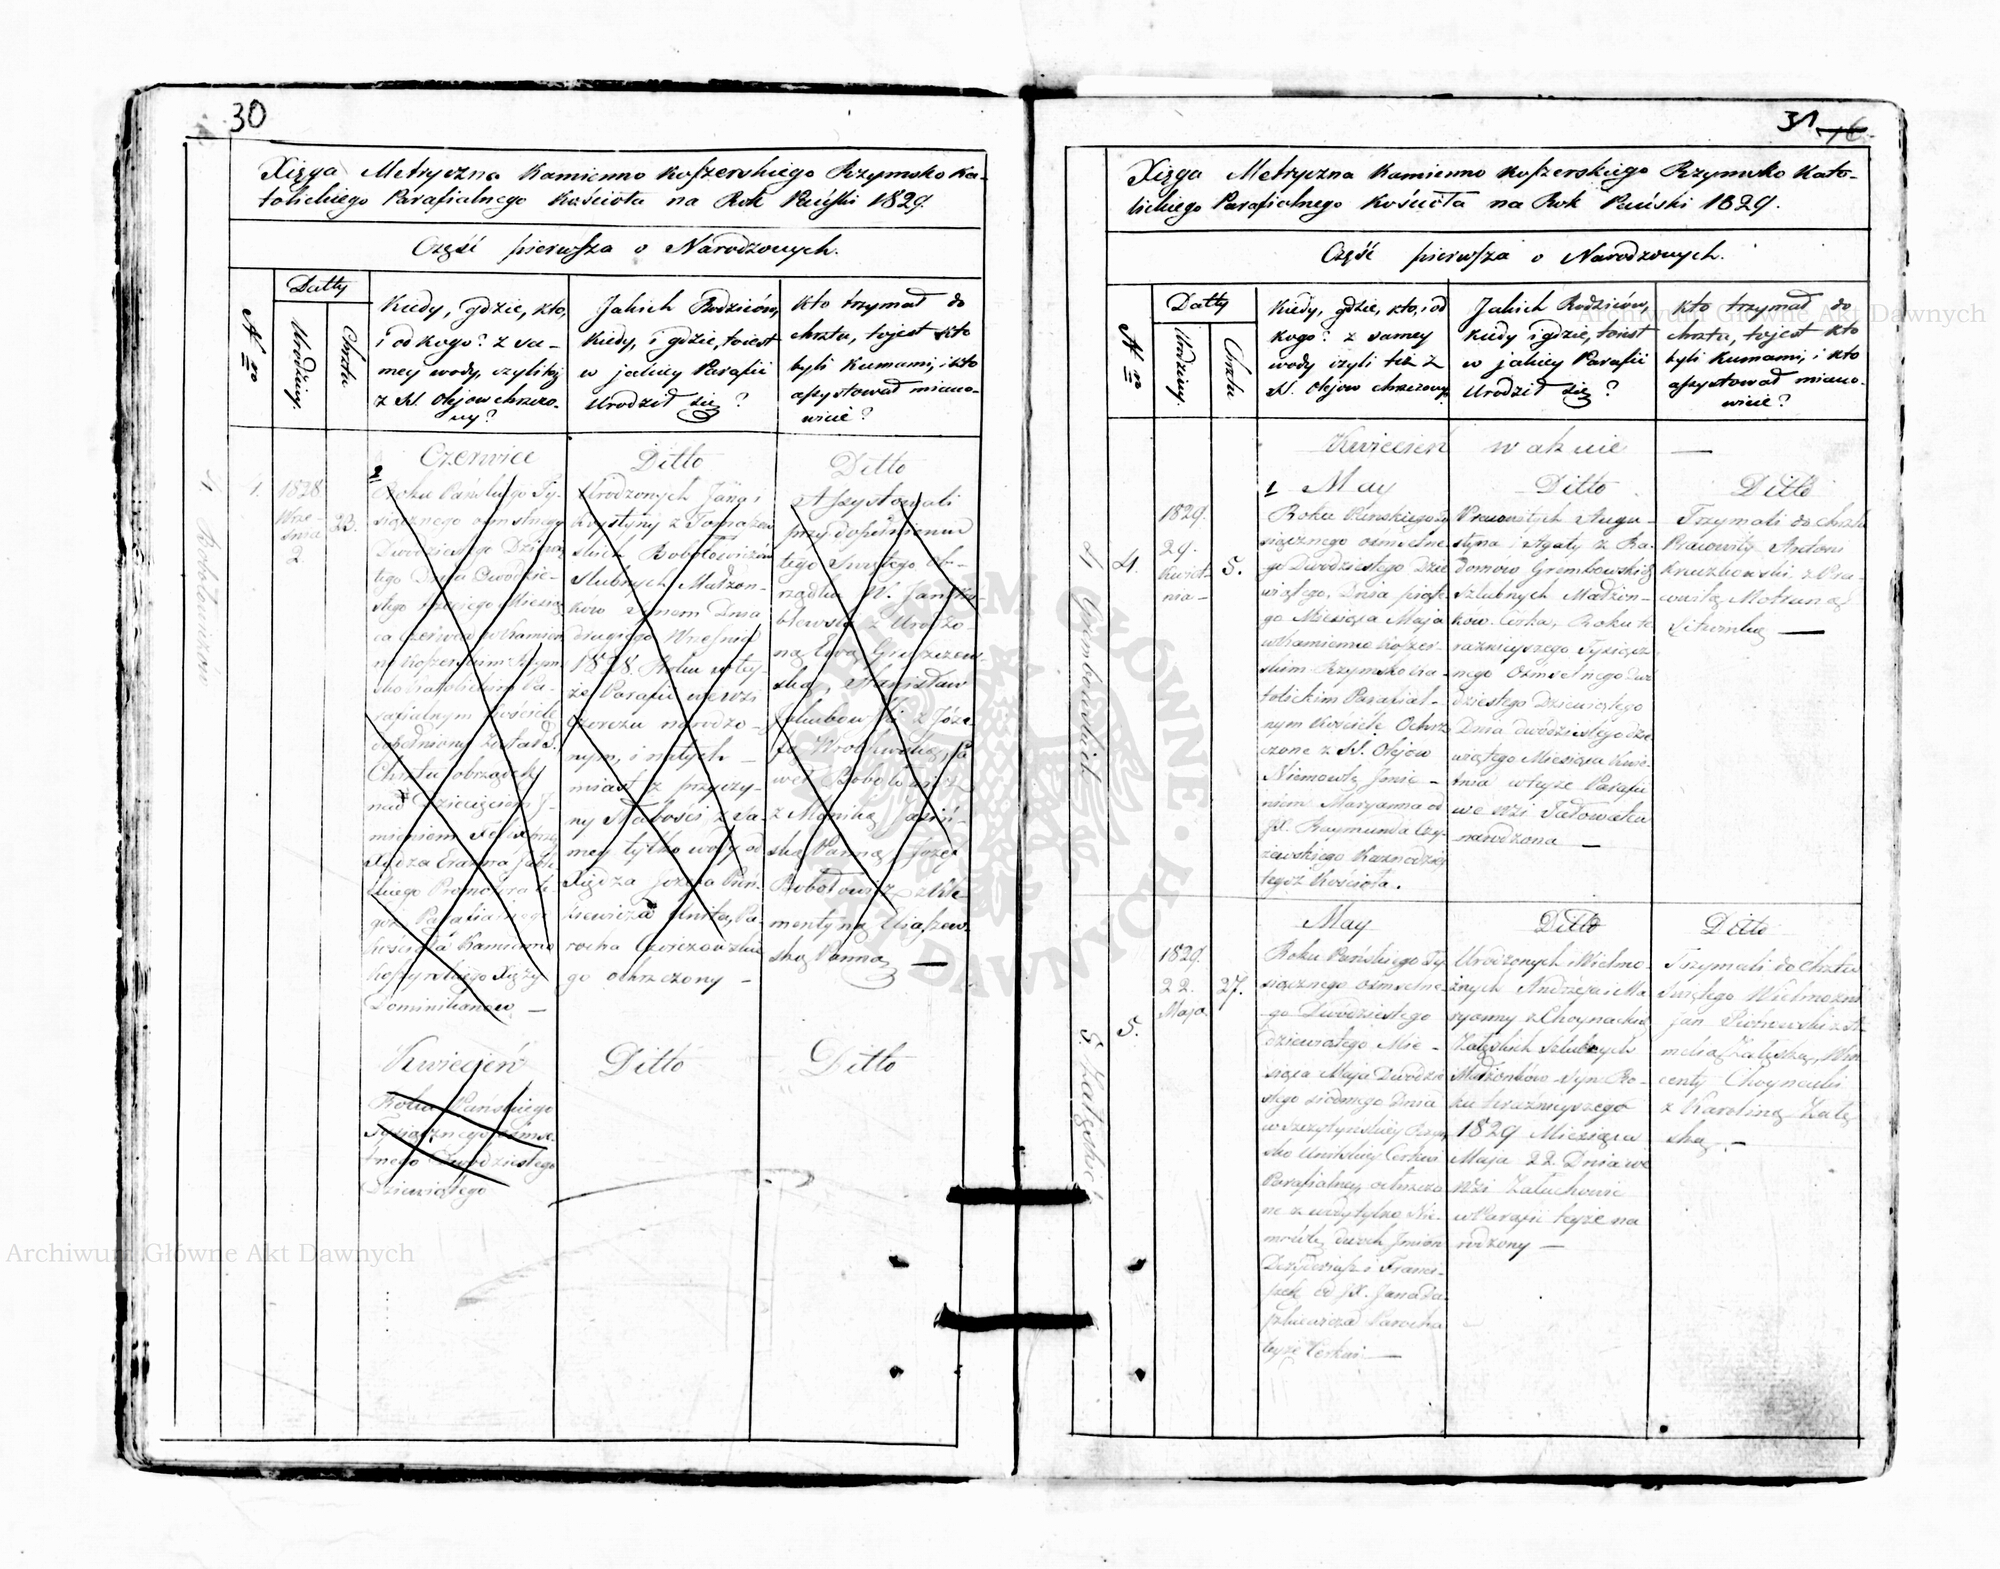 30
Xięga Metryczna Kamienno Koszerskiego Rzymsko Ka-
tolickiego Parafialnego Kościoła na Rok Pański 1829.
Część pierwsza o Narodzonych.
N ro
Datty
Urodziny.
Chrztu
Kiedy, gdzie, kto,
i od kogo? z sa-
mey wody, czyli też
z SS. Olejow chrzczo-
ny?
Jakich Rodziców,
kiedy, i gdzie, toiest
w jakiey Parafii
Urodził się?
Kto trzymał do
chrztu, tojest kto
byli Kumami, i kto
assystował miano-
wicie?
4 Bobołowiczów
1.
1828
Wrze-
śnia
2
23.
Czerwiec
2
Roku Pańskiego Ty-
siącznego osmsetnego
Dwudziestego Dziewią-
tego Dnia Dwudzie-
stego trzeciego Miesią-
ca Czerwca w Kamien-
no Koszerskim Rzym-
sko Katolickim Pa-
rafialnym Kościele
dopełniony został S.
Chrztu obrządek
nad Dziecięciem I-
mieniem Felix przez
Xiędza
Promotora te-
goż Parafialnego
Kościoła Kamienno
Koszyrskiego Xięży
Dominikanow —
Ditto
Urodzonych Jana i
Krystyny z Tomaszew-
skich Bobołowiczów
Slubnych Małżon-
ków Synem Dnia
drugiego Września
1828 Roku w tey
że Parafii we wsi
narodzo-
nym, i natych-
miast z przyczy-
ny słabości z sa-
mey tylko wody od
Xiędza Jozefa
Unity, Pa-
rocha
go ochrzczony —
Ditto
Assystowali
przy dopełnieniu
tego Swiętego ob-
rządku W. Jan
z Urodzo
ną Ewą
ską, Stanisław
Jakubowski z Józe-
fą Wroblewską, Pa-
weł Bobołowicz
z Maniką Jasiń-
ską Panną, Józef
Bobołowicz z Kle-
mentyną Eliaszew-
ską Panną —
Kwiecień
Ditto
Ditto
Roku Pańskiego
Tysiącznego osmse-
tnego Dwudziestego
Dziewiątego
31
16
Xięga Metryczna Kamienno Koszerskiego Rzymsko Kato-
lickiego Parafialnego Kościoła na Rok Pański 1829.
Część pierwsza o Narodzonych.
N ro
Datty
Urodziny.
Chrztu
Kiedy, gdzie, kto, i od
kogo? z samey
wody czyli też z
SS. Olejow chrzczony?
Jakich Rodziców,
kiedy i gdzie, toiest
w jakiey Parafii
Urodził się?
Kto trzymał do
chrztu, tojest kto
byli Kumami, i kto
assystował miano-
wicie?
Kwiecień wakuie —
4 Grembowskich
4.
1829.
29.
Kwiet-
nia —
5.
1 May
Roku Pańskiego Ty
siącznego osmsetne-
go Dwudziestego Dzie
wiątego, Dnia piąte-
go Miesiąca Maja
w Kamienno Koszer-
skim Rzymsko Ka-
tolickim Parafial-
nym Kościele Ochrz-
czone z SS. Olejow
Niemowlę Imie-
niem Maryanna od
JX. Raymunda Czy-
żewskiego Kaznodziei
tegoż Kościoła.
Ditto
Pracowitych Augu-
styna i Agaty z Ra-
domow Grembowskich
Szlubnych Małżon-
ków. Córka, Roku te
raznieyszego Tysiącz-
nego Osmsetnego Dwu
dziestego Dziewiątego
Dnia dwudziestego dzie
wiątego Miesiąca Kwie-
tnia w teyże Parafii
we Wsi
narodzona —
Ditto
Trzymali do chrztu
Pracowity Antoni
z Pra-
cowitą Motruną
Litwinką —
5. Załęskich
5.
1829.
22.
Maja
27.
May
Roku Pańskiego Ty-
siącznego osmsetne-
go Dwudziestego
dziewiątego Mie-
siąca Maja Dwudzie
stego siodmego Dnia
w Szczytyńskiey Rzym
sko Unickiey Cerkwi
Parafialney, ochrzczo
ne z wody tylko Nie-
mowlę dwoch Imion
Dezyderiusz i Franci-
szek od JX. Jana Da-
szkiewicza Parocha
teyże Cerkwi —
Ditto
Urodzonych Wielmo-
żnych Andrzeja i Ma-
ryanny z Choynackich
Załęskich Szlubnych
Małżonków Syn Ro-
ku teraznieyszego
1829 Miesiąca
Maja 22 Dnia we
Wsi Załuchowie
w Parafii teyże na
rodzony —
Ditto
Trzymali do Chrztu
Świętego Wielmożni
Jan Piotrowski z A-
melią Załęską, Win-
centy Choynacki
z Karoliną Załę-
ską —
Archiwum Główne Akt Dawnych
Archiwum Główne Akt Dawnych
ARCHIWUM GŁÓWNE AKT DAWNYCH